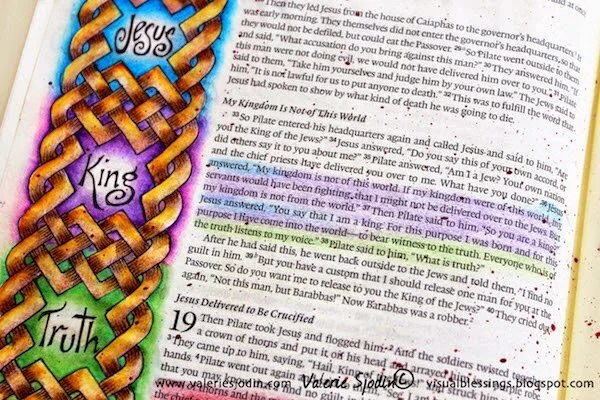 Jesus
King
Truth
Then they led Jesus from the house of Caiaphas to the governor's headquarters. It
was early morning. They themselves did not enter the governor's headquarters, so that
they would not be defiled, but could eat the Passover. 29 So Pilate went outside to them
and said, "What accusation do you bring against this man?" 30 They answered him, "If
this man were not doing evil, we would not have delivered him over to you." 31 Pilate
said to them, "Take him yourselves and judge him by your own law." The Jews said to
him, "It is not lawful for us to put anyone to death." 32 This was to fulfill the word that
Jesus had spoken to show by what kind of death he was going to die.
My Kingdom Is Not of This World
33 So Pilate entered his headquarters again and called Jesus and said to him, "Are
you the King of the Jews?" 34 Jesus answered, "Do you say this of your own accord, or
did others say it to you about me?" 35 Pilate answered, "Am I a Jew? Your own nation
and the chief priests have delivered you over to me. What have you done?" 36 Jesus
answered, "My kingdom is not of this world. If my kingdom were of this world, my
servants would have been fighting, that I might not be delivered over to the Jews. But
my kingdom is not from the world." 37 Then Pilate said to him, "So you are a king?"
Jesus answered, "You say that I am a king. For this purpose I was born and for this
purpose I have come into the world—to bear witness to the truth. Everyone who is of
the truth listens to my voice." 38 Pilate said to him, "What is truth?"
After he had said this, he went back outside to the Jews and told them, "I find no
guilt in him. 39 But you have a custom that I should release one man for you at the
Passover. So do you want me to release to you the King of the Jews?" 40 They cried out
again, "Not this man, but Barabbas!" Now Barabbas was a robber.
Jesus Delivered to Be Crucified
19 Then Pilate took Jesus and flogged him. 2 And the soldiers twisted together
a crown of thorns and put it on his head and arrayed him in a purple robe.
They came up to him, saying, "Hail, King of
hands. 4 Pilate went out again
that you may know
www.valeriesjodin.com Valerie Sjodin© visualblessings.blogspot.com